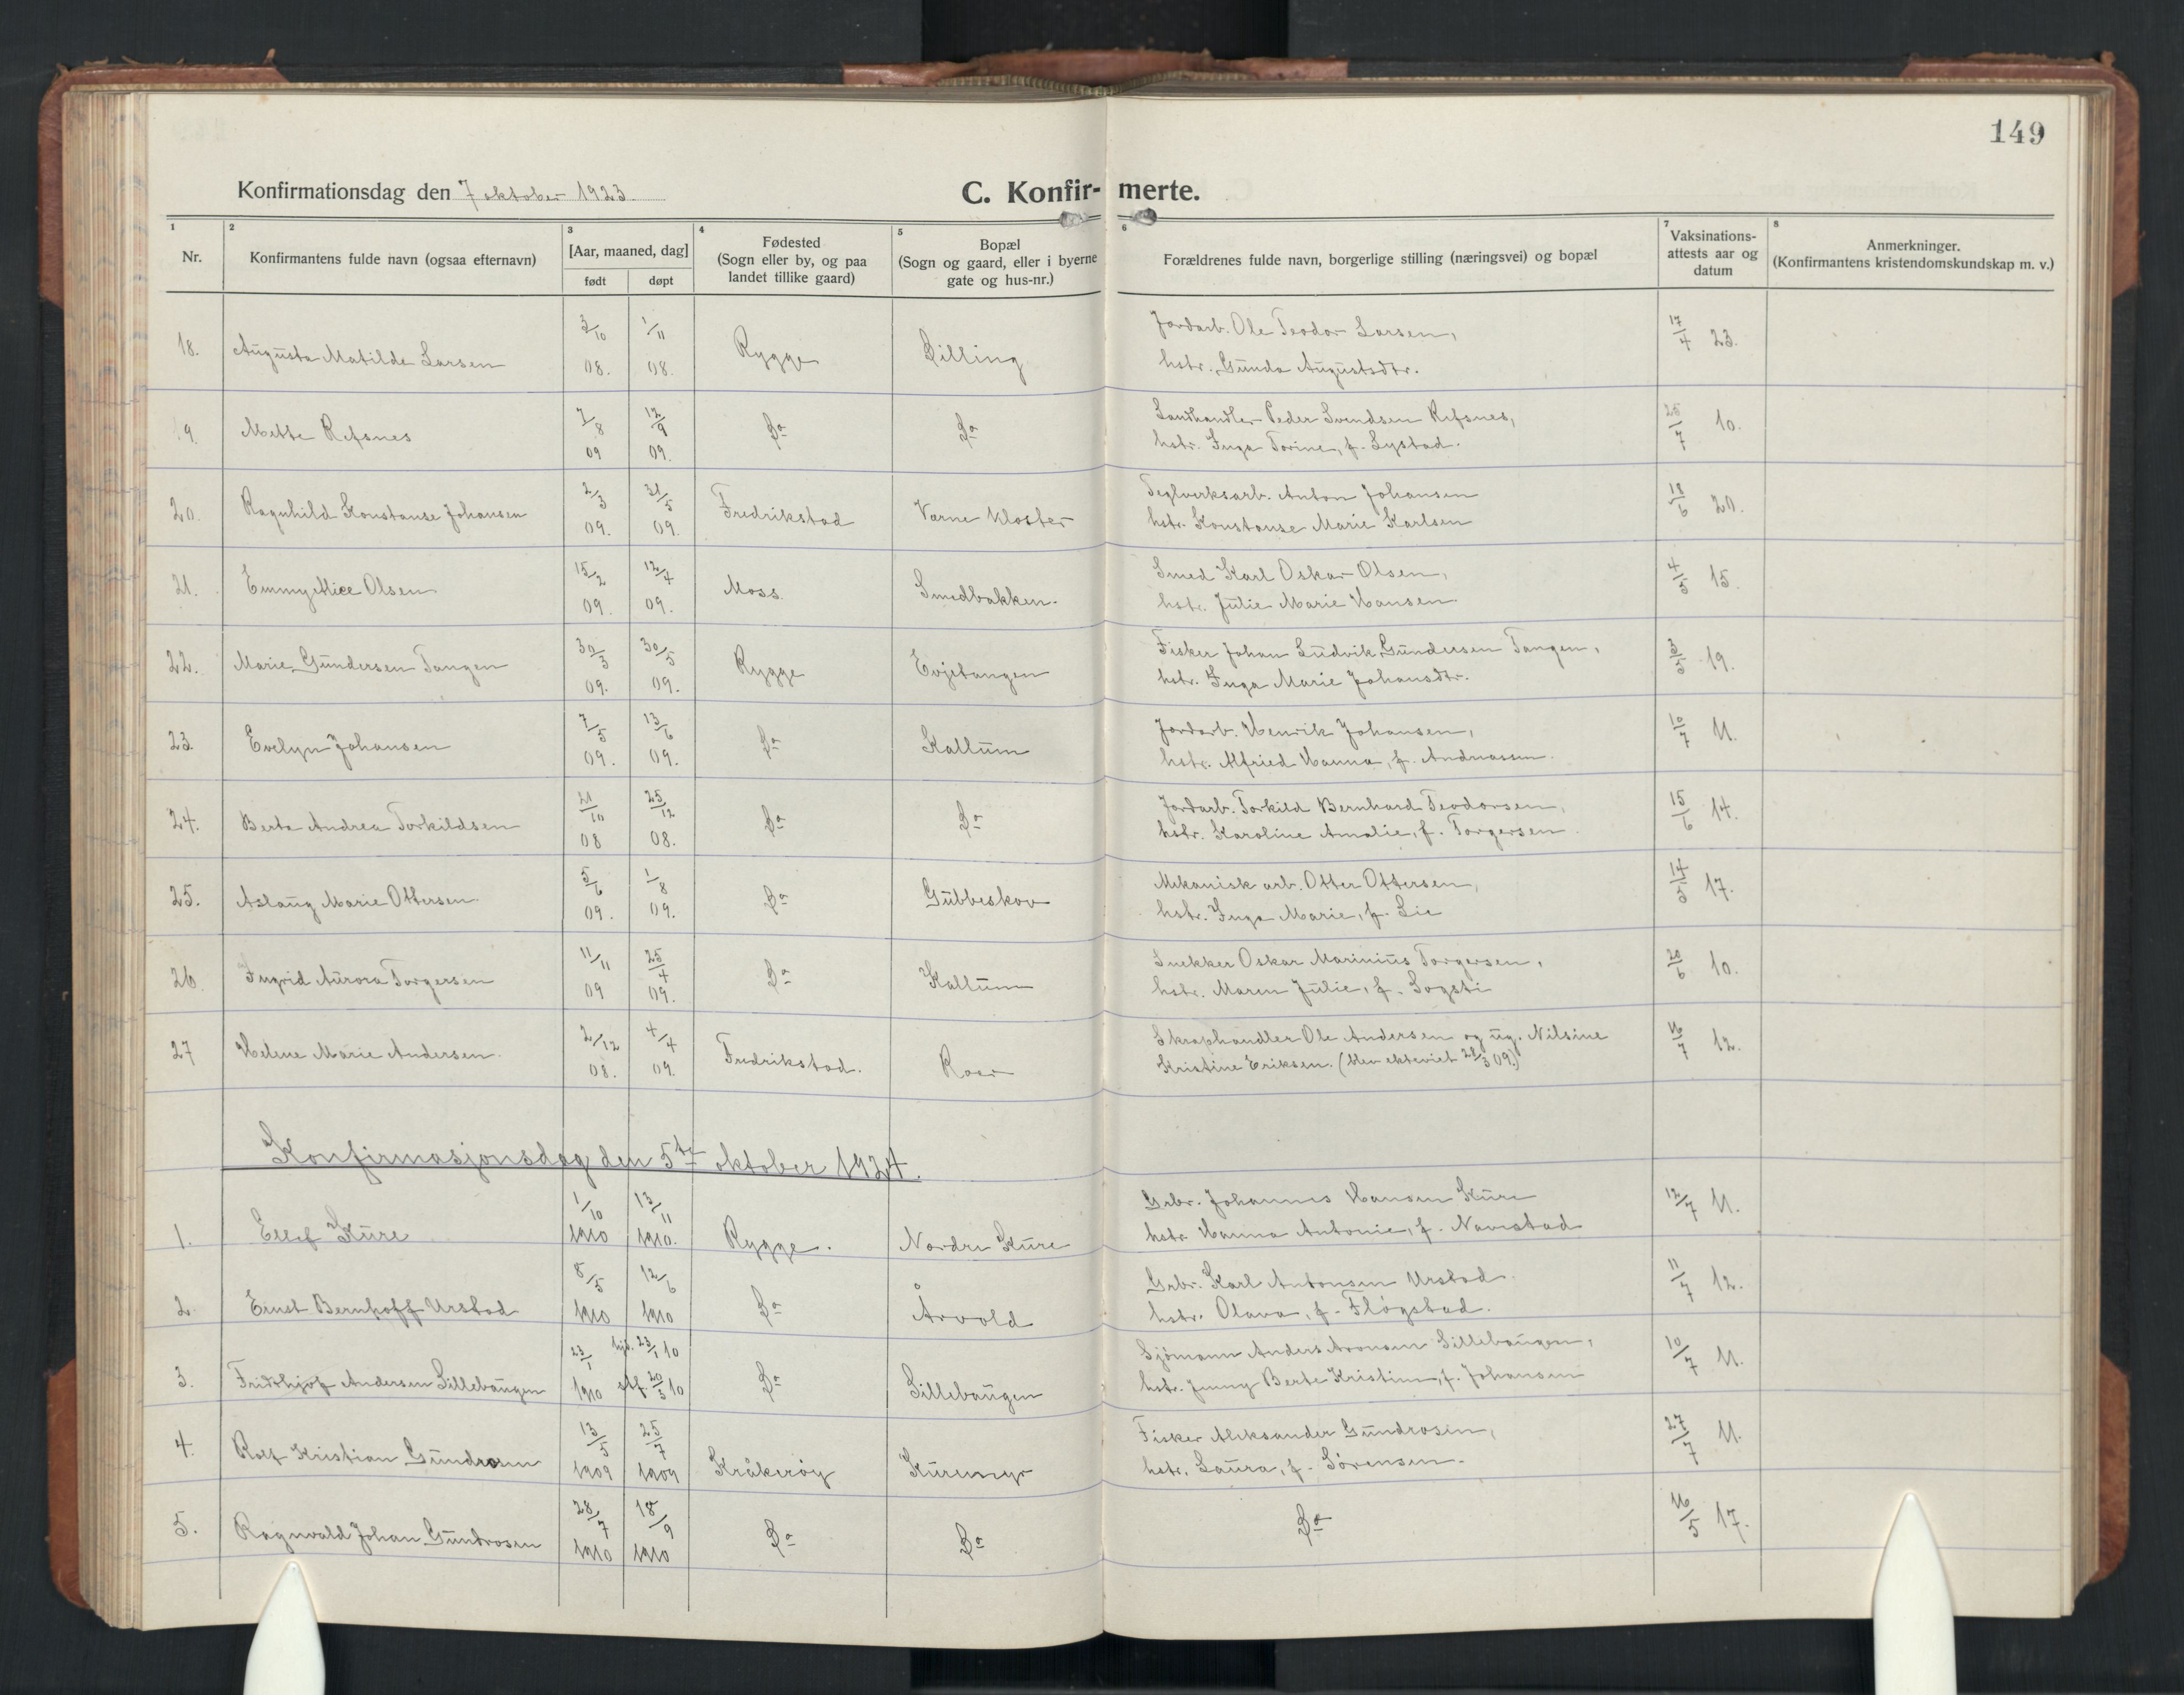 149
Konfirmationsdag den 7 oktober 1923.
C. Konfir- merte.
1 2 3 4 5 6 7 8
Nr.
Konfirmantens fulde navn (ogsaa efternavn)
[Aar, maaned, dag]
født døpt
Fødested
(Sogn eller by, og paa
landet tillike gaard)
Bopæl
(Sogn og gaard, eller i byerne
gate og hus-nr.)
Forældrenes fulde navn, borgerlige stilling (næringsvei) og bopæl
Vaksinations-
attests aar og
datum
Anmerkninger.
(Konfirmantens kristendomskundskap m. v.)
18. Augusta Matilde Larsen 3/10 08. 1/11 08. Rygge Dilling Jordarb. Ole Teodor Larsen, 17/4 23.
hstr. Gunda Augustsdtr.
19. Mette Refsnes 7/8 09 12/9 09. Do Do Landhandler Peder Svendsen Refsnes, 25/7 10.
hstr. Inga Torine, f. Lystad.
20. Ragnhild Konstanse Johansen 2/3 09. 31/5 09. Fredrikstad Værne Kloster Teglverksarb. Anton Johansen 18/6 20.
hstr. Konstanse Marie Karlsen
21. Emmy Alice Olsen 15/2 09. 12/4 09. Moss Smedbakken. Smed Karl Oskar Olsen, 4/5 15.
hstr. Julie Marie Hansen
22. Marie Gundersen Tangen 30/3 09. 30/5 09. Rygge Evjetangen Fisker Johan Ludvik Gundersen Tangen, 19.
hstr. Inga Marie Johansdtr.
23. Evelyn Johansen 7/5 09. 13/6 09. Do Kallum Jordarb. Henrik Johansen, 10/7 11.
hstr. Alfried Hanna, f. Andreassen.
24. Berta Andrea Torkildsen 21/10 08 25/12 08. Do Do Jordarb. Torkild Bernhard Teodorsen, 15/6 14.
hstr. Karoline Amalie, f. Torgersen
25. Aslaug Marie Ottersen 5/6 09. 1/8 09. Do Gubbeskov Mekanisk arb. Otter Ottersen, 14/5 17.
hstr. Inga Marie, f. Lie
26. Ingrid Aurora Torgersen 11/11 09 25/4 09. Do Kallum Snekker Oskar Marinius Torgersen, 20/6 10.
hstr. Maren Julie, f. Sogsti
27 Helene Marie Andersen. 2/12 08. 4/4 09. Fredrikstad. Roer Skraphandler Ole Andersen og ug. Nilsine 16/7 12.
Kristine Eriksen. (blev ekteviet 28/3 09.)
Konfirmasjonsdag den 5te oktober 1924.
1. Ellef Kure 1/10 1910 13/11 1910. Rygge. Nordre Kure Grbr. Johannes Hansen Kure 12/7 11.
hstr Hanna Antonie, f. Navestad
2. Ernst Bernhoff Urstad 8/5 1910 12/6 1910 Do Årvold Grbr. Karl Antonsen Urstad. 11/7 12.
hstr. Olava, f. Fløgstad.
3. Fridthjof Andersen Sillebaugen 23/1 1910 hjd. 23/1 10 stf. 20/3 10 Do Sillebaugen Sjömann Anders Aronsen Sillebaugen, 10/7 11.
hstr. Jenny Berte Kristine, f. Johansen
4. Rolf Kristian Gundrosen 13/5 1909 25/7 1909 Kråkerøy Kuremyr Fisker Aleksander Gundrosen, 27/7 11.
hstr. Laura, f. Sørensen.
5. Ragnvald Johan Gundrosen 28/7 1910 18/9 1910 Do Do Do 16/5 17.